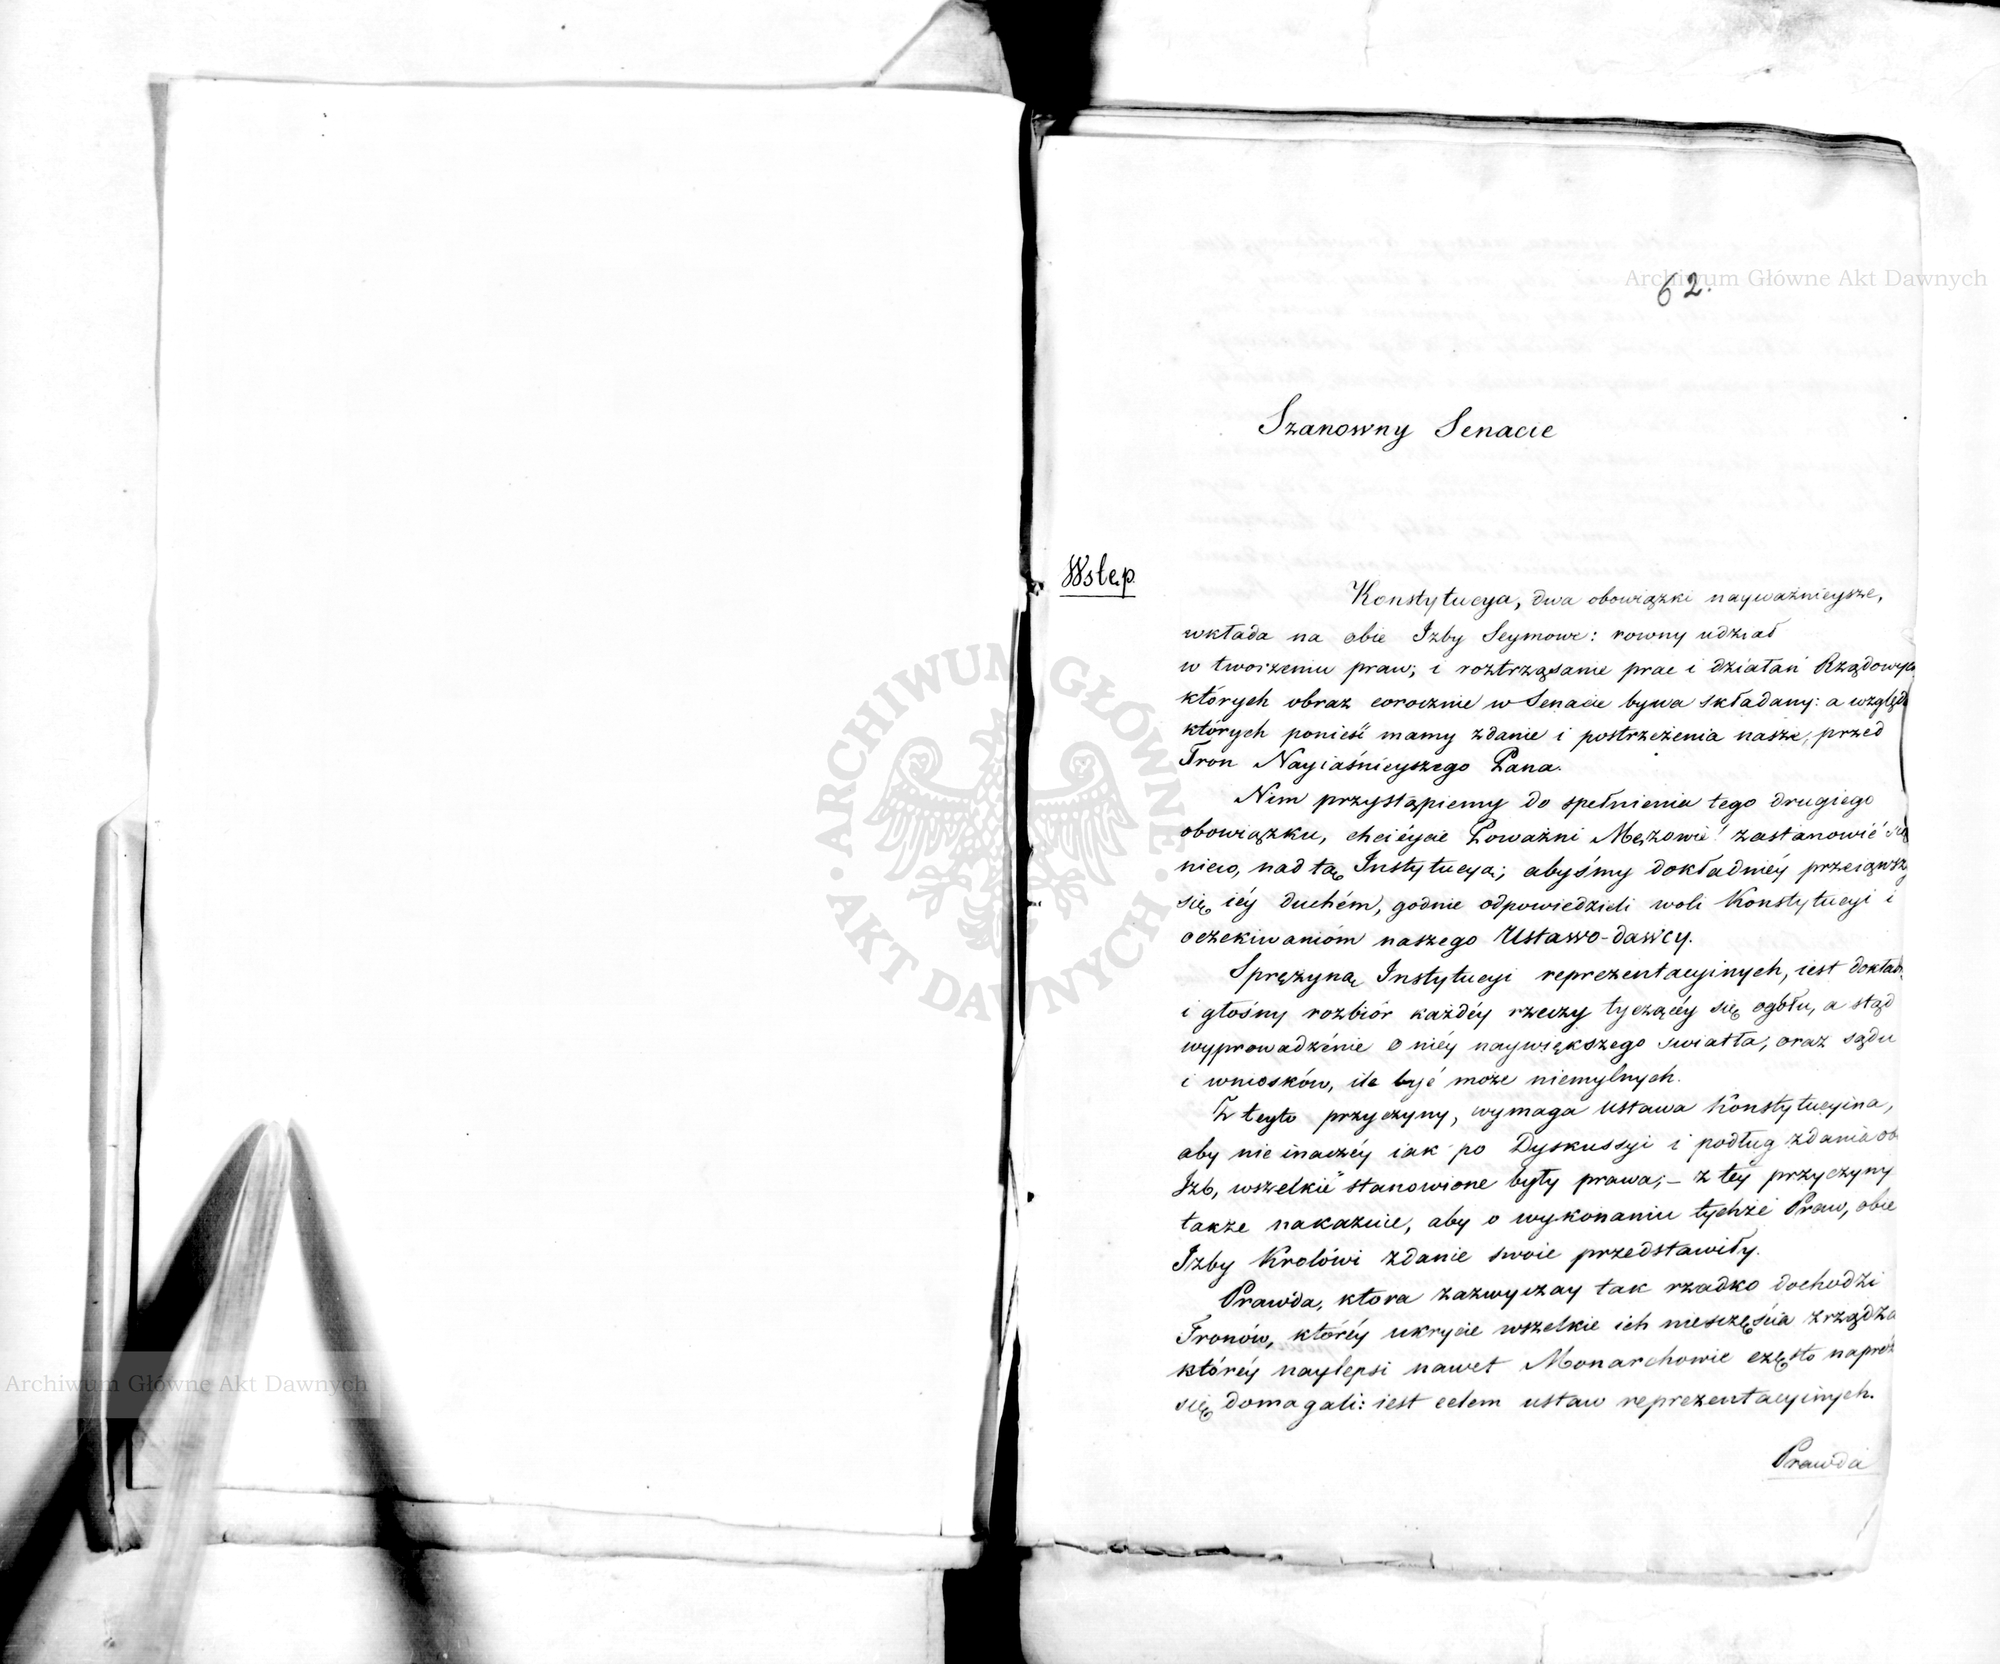 62.
Szanowny Senacie
Wstęp
Konstytucya, dwa obowiązki nayważnieysze,
wkłada na obie Izby Seymowe: rowny udział
w tworzeniu praw; i roztrząsanie prac i działań Rządowych
których obraz corocznie w Senacie bywa składany: a względem
których ponieść mamy zdanie i postrzeżenia nasze, przed
Tron Nayiaśnieyszego Pana.
Nim przystąpiemy do spełnienia tego drugiego
obowiązku, chciéycie Poważni Mężowie! zastanowić się
nieco, nad tą Instytucyą; abyśmy dokładniéy przeiąwszy
się iéy duchém, godnie odpowiedzieli woli Konstytucyi i
oczekiwanióm naszego Ustawo-dawcy.
Sprężyną Instytucyi reprezentacyinych, iest dokład
i głośny rozbiór każdéy rzeczy tyczącéy się ogółu, a stąd
wyprowadzénie o niéy naywiększego swiatła, oraz sądu
i wniosków, ile być może niemylnych.
Z teyto przyczyny, wymaga Ustawa Konstytucyina,
aby nie inaczéy iak po Dyskussyi i podług zdania ob
Izb, wszelkie stanowione były prawa; – z téy przyczyny
także nakazuie, aby o wykonaniu tychże Praw, obie
Izby Krolówi zdanie swoie przedstawiły.
Prawda, ktora zazwyczay tak rzadko dochodzi
Tronów, któréy ukrycie wszelkie ich niesczęścia zrządza
któréy naylepsi nawet Monarchowie często napróż
się domagali: iest celem ustaw reprezentacyinych.
Prawda
Archiwum Główne Akt Dawnych
Archiwum Główne Akt Dawnych
ARCHIWUM GŁÓWNE AKT DAWNYCH